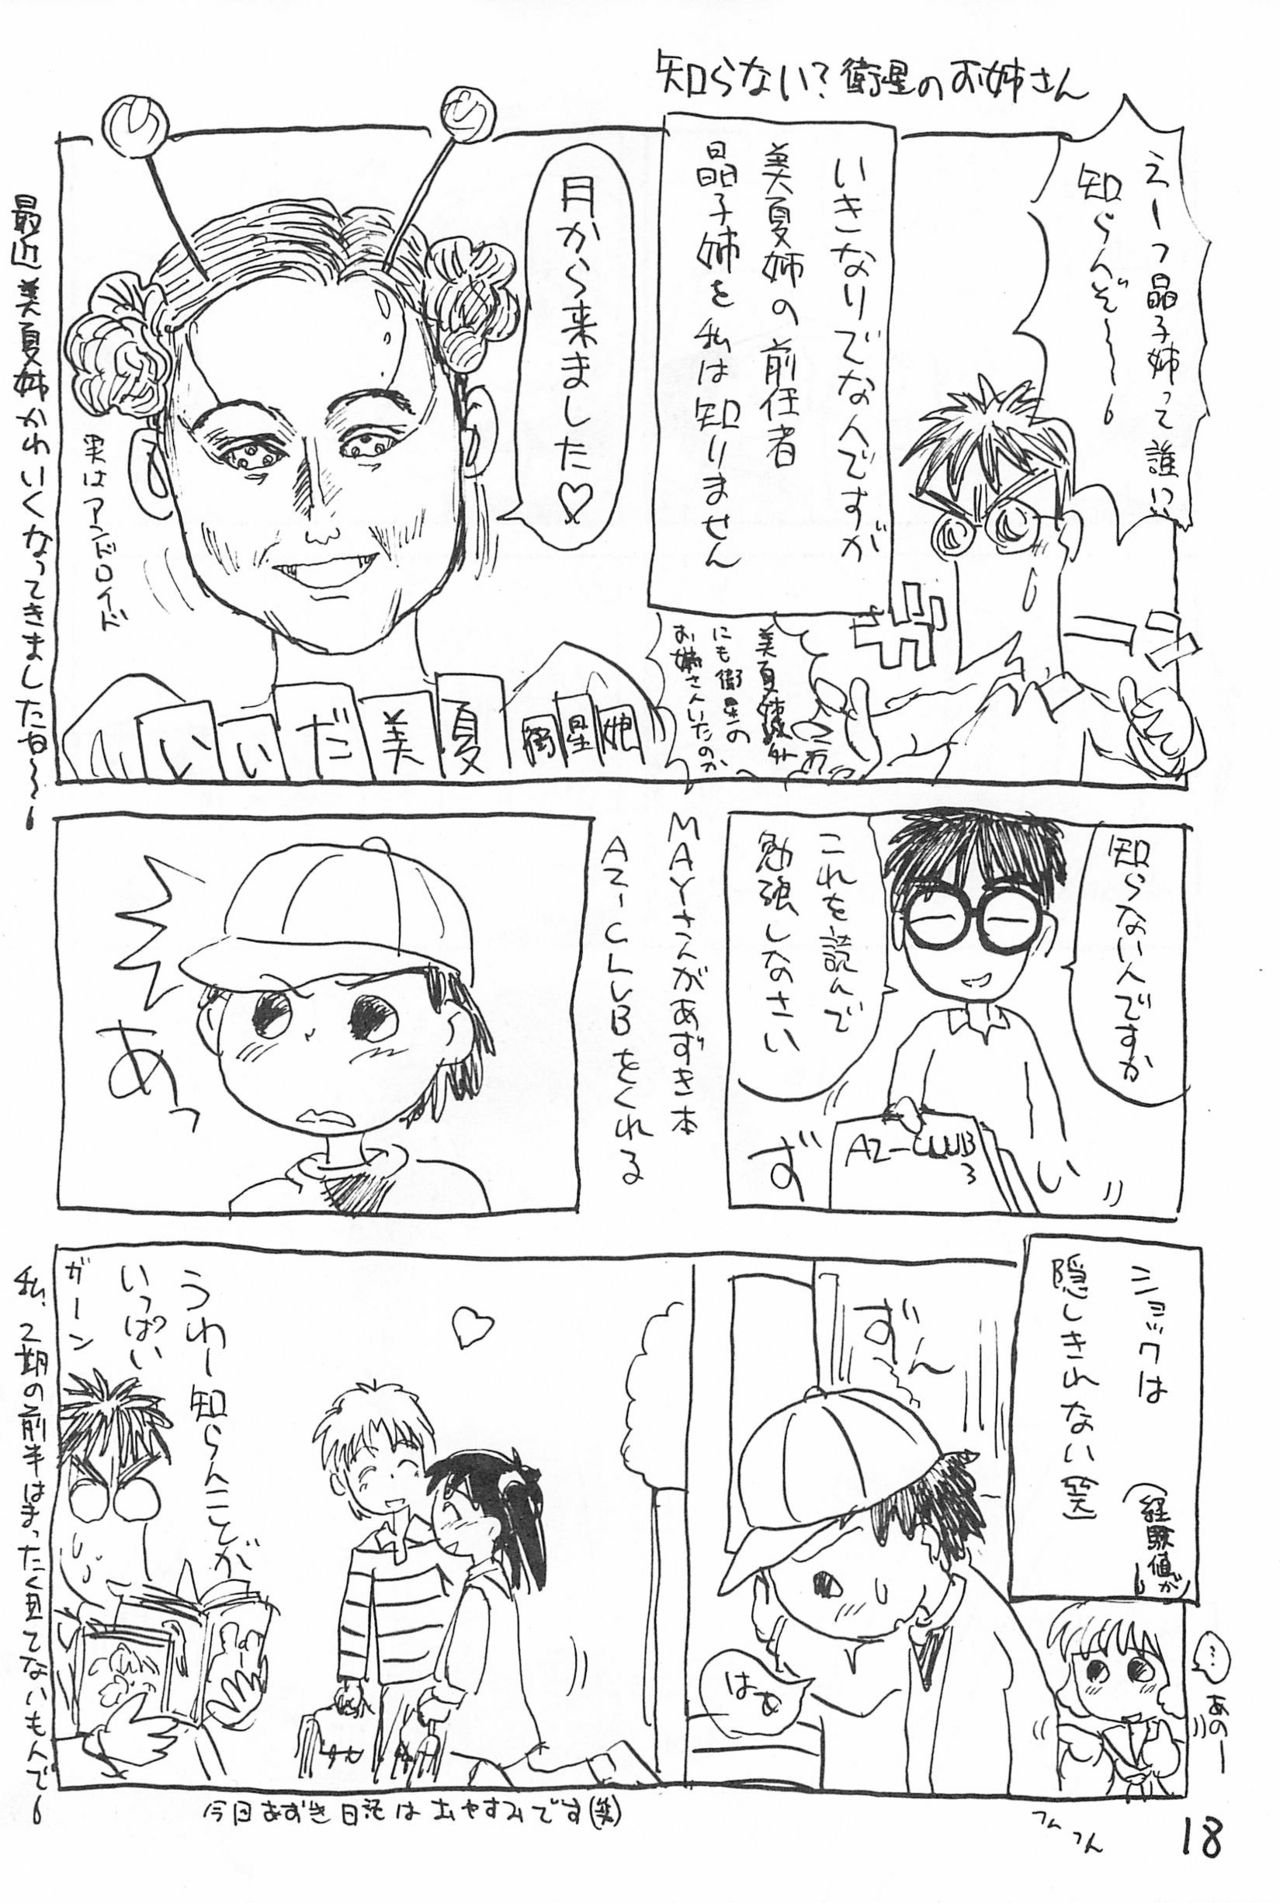 知らない？衛星のお姉さん
えーっ晶子姉って誰い
知らんぞ〜〜
いきなりでなんですが
美夏姉の前任者
晶子姉を私は知りません
ガーン
美夏姉以外
にも衛星の
お姉さんいたのか
月から来ました♡
実はアンドロイド
いいだ美夏
衛星娘
最近美夏姉かわいくなってきましたね〜〜
知らないんですか
これを読んで
勉強しなさい
AZ-CLUB
3
ずい
MAYさんがあずき本
AZ-CLUBをくれる
あっ
ショックは
隠しきれない(笑)
(経験値が)
ずーん
はぁ
…
あのー
うわー知らんことが
いっぱい
ガーン
私、2期の前半はまったく見てないもんで
今回あずき日記はおやすみです(笑)
ふんふん
18